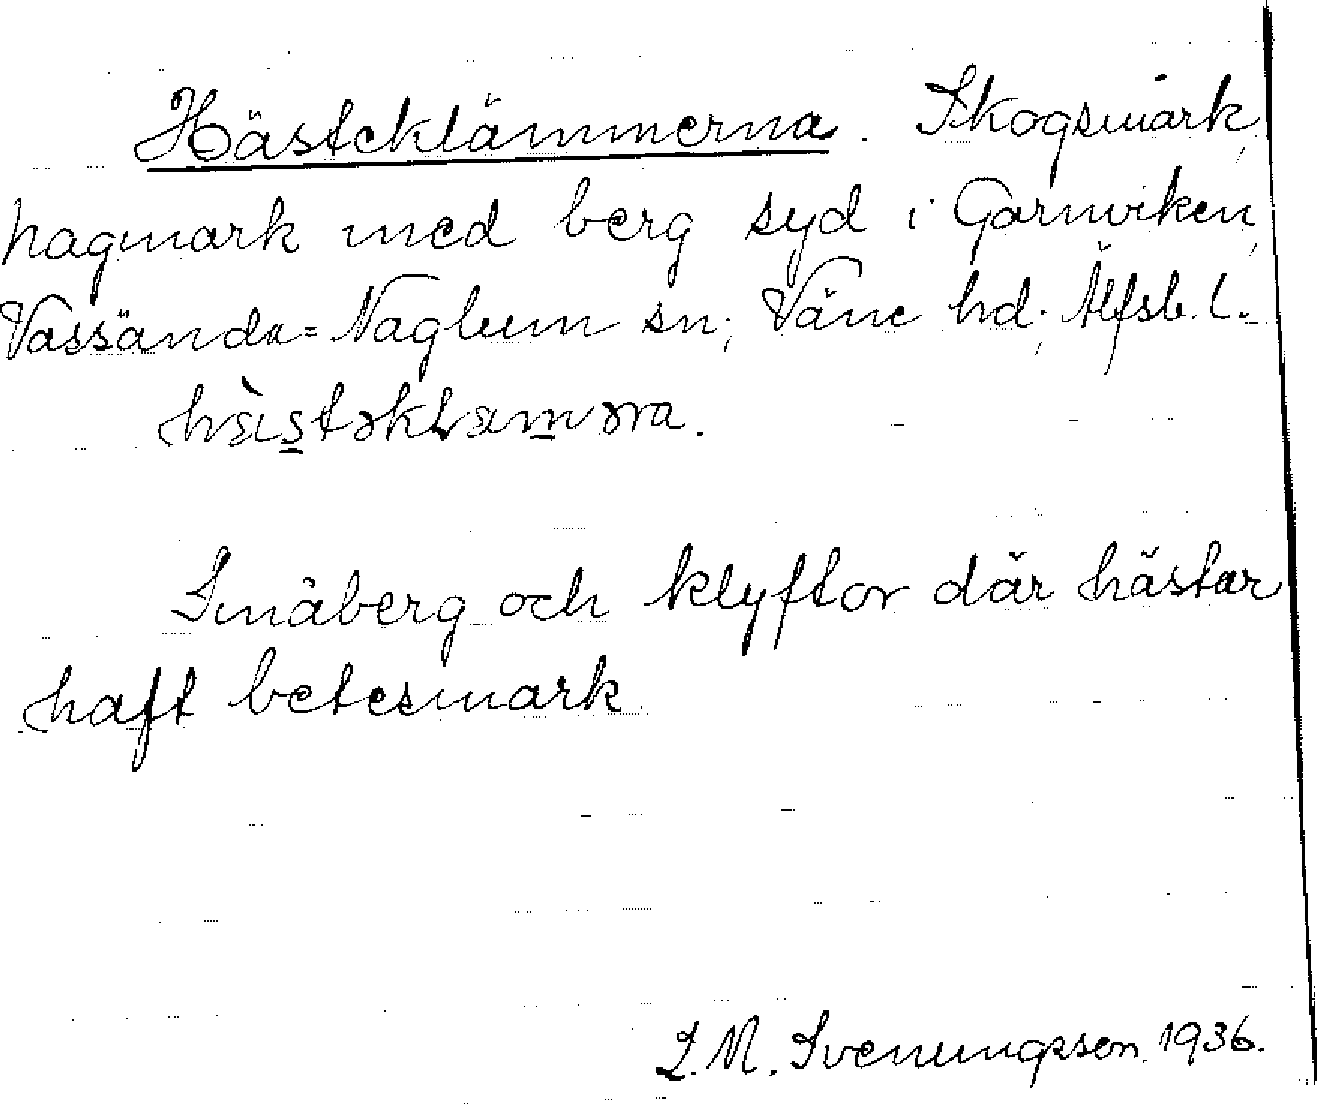 Hästeklämmerna. Skogsmark,
hagmark med berg syd i Garnviken,
Vassända=Naglum sn; Väne hd; Älfsb. l.
hästəklæməra.
Småberg och klyftor där hästar
haft betesmark
L. M. Svenungsson 1936.